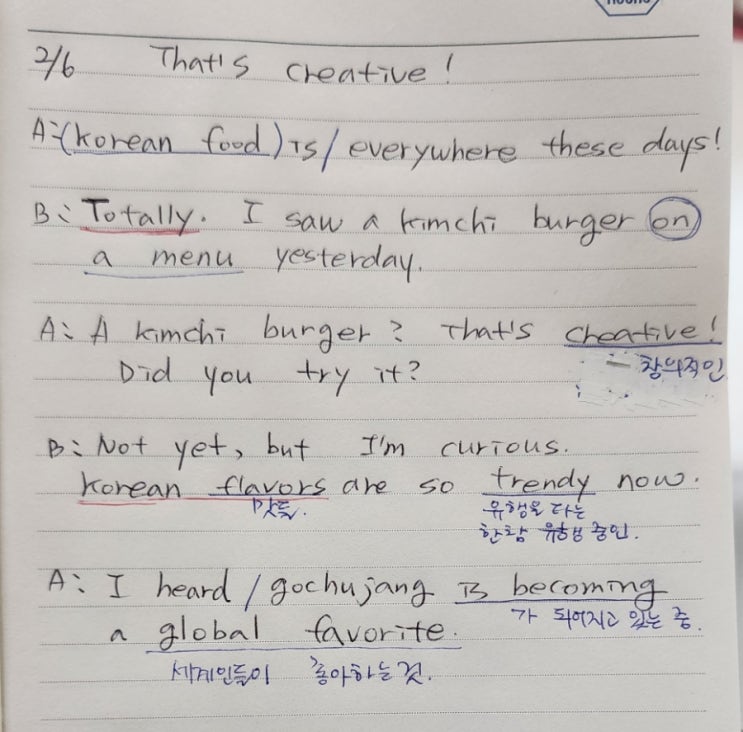 2/6 That's creative!
A:(korean food) is / everywhere these days!
B: Totally. I saw a kimchi burger on
a menu yesterday.
A: A kimchi burger? That's creative!
창의적인
Did you try it?
B: Not yet, but I'm curious.
korean flavors are so trendy now.
맛들. 유행을 타는
한창 유행 중인.
A: I heard / gochujang is becoming
가 되어지고 있는 중.
a global favorite.
세계인들이 좋아하는 것.